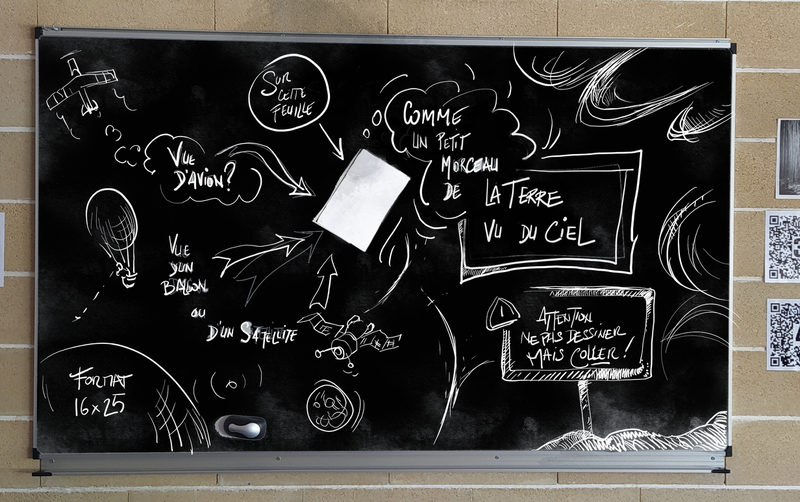 SUR
CETTE
FEUILLE
COMME
UN PETIT
MORCEAU
DE
LA TERRE
VU DU CIEL
VUE
D'AVION?
VUE
D'UN
BALLON
OU
D'UN SATELLITE
ATTENTION
NE PAS DESSINER
MAIS COLLER!
FORMAT
16x25